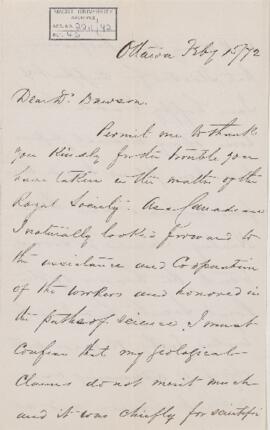 McGILL UNIVERSITY
ARCHIVES
ACC. NO.
REF. 43
Ottawa Feby 15/72
Dear Dr Dawson.
Permit me to thank
you kindly for the trouble you
have taken in the matter of the
Royal Society. As a Canadian
I naturally looked forward to
the assistance and Cooperation
of the workers and honored in
the paths of science. I must
confess that my geological
Claims do not merit much
and it was chiefly for scientifi